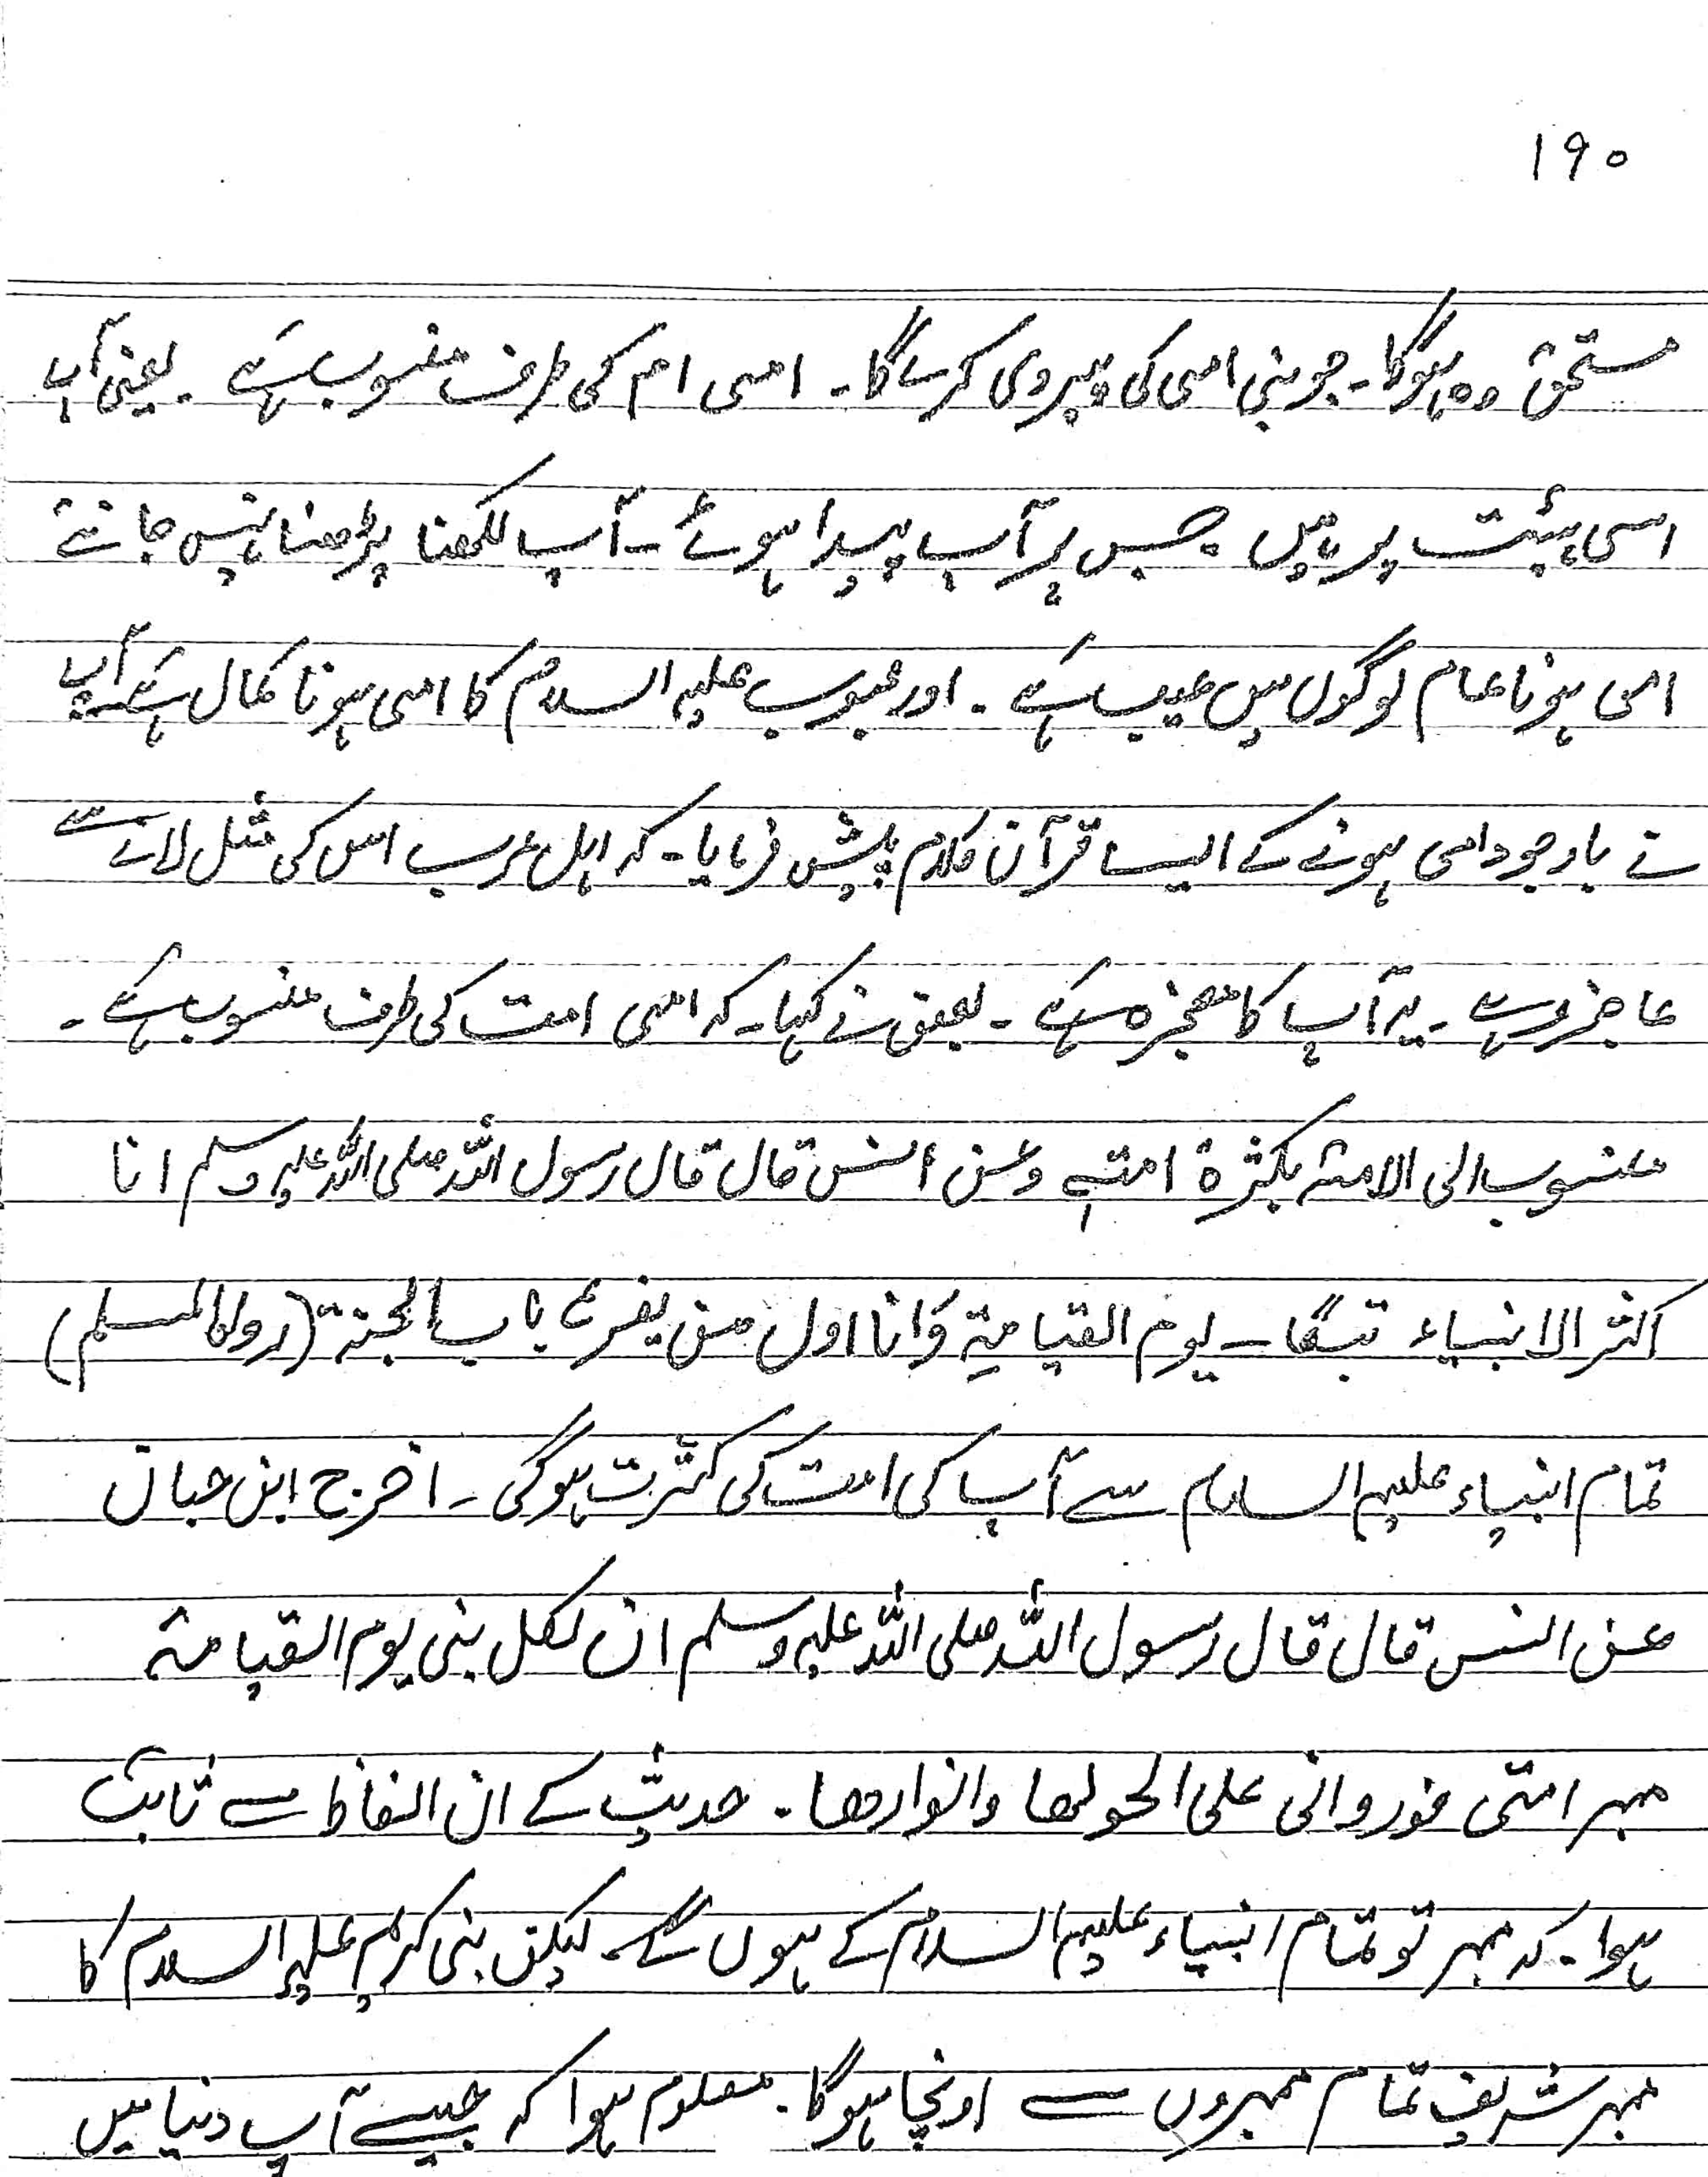 ۱۹۰
مستحق وہ ہوگا۔ جو نبی امی کی پیروی کرے گا۔ امی ام کی طرف منسوب ہے۔ یعنی آپ
اسی ہیئت پر ہیں جس پر آپ پیدا ہوئے۔ آپ لکھنا پڑھنا نہیں جانتے
امی ہونا عام لوگوں میں عیب ہے۔ اور محبوب علیہ السلام کا امی ہونا کمال ہے آپ
نے باوجود امی ہونے کے ایسا قرآن کلام پیش فرمایا۔ کہ اہل عرب اس کی مثل لانے سے
عاجز رہے۔ یہ آپ کا معجزہ ہے۔ بعض نے کہا۔ کہ امی امت کی طرف منسوب ہے۔
منسوب الی الامۃ بکثرۃ امتہ وعن انس قال قال رسول اللہ صلی اللہ علیہ وسلم انا
اکثر الانبیاء تبعًا۔ یوم القیامۃ وَانا اول من یقرع باب الجنۃ (رواہ المسلم)
تمام انبیاء علیہم السلام سے آپ کی امت کی کثرت ہوگی۔ اخرج ابن حبان
عن انس قال قال رسول اللہ صلی اللہ علیہ وسلم ان لکل نبی یوم القیامۃ
ممبر امتی وانی علی وانوارھا۔ حدیث کے ان الفاظ سے ثابت
ہوا۔ کہ ممبر تو تمام انبیاء علیہم السلام کے ہوں گے۔ لیکن نبی کریم علیہ السلام کا
ممبر شریف تمام ممبروں سے اونچا ہوگا۔ معلوم ہوا کہ جیسے آپ دنیا میں